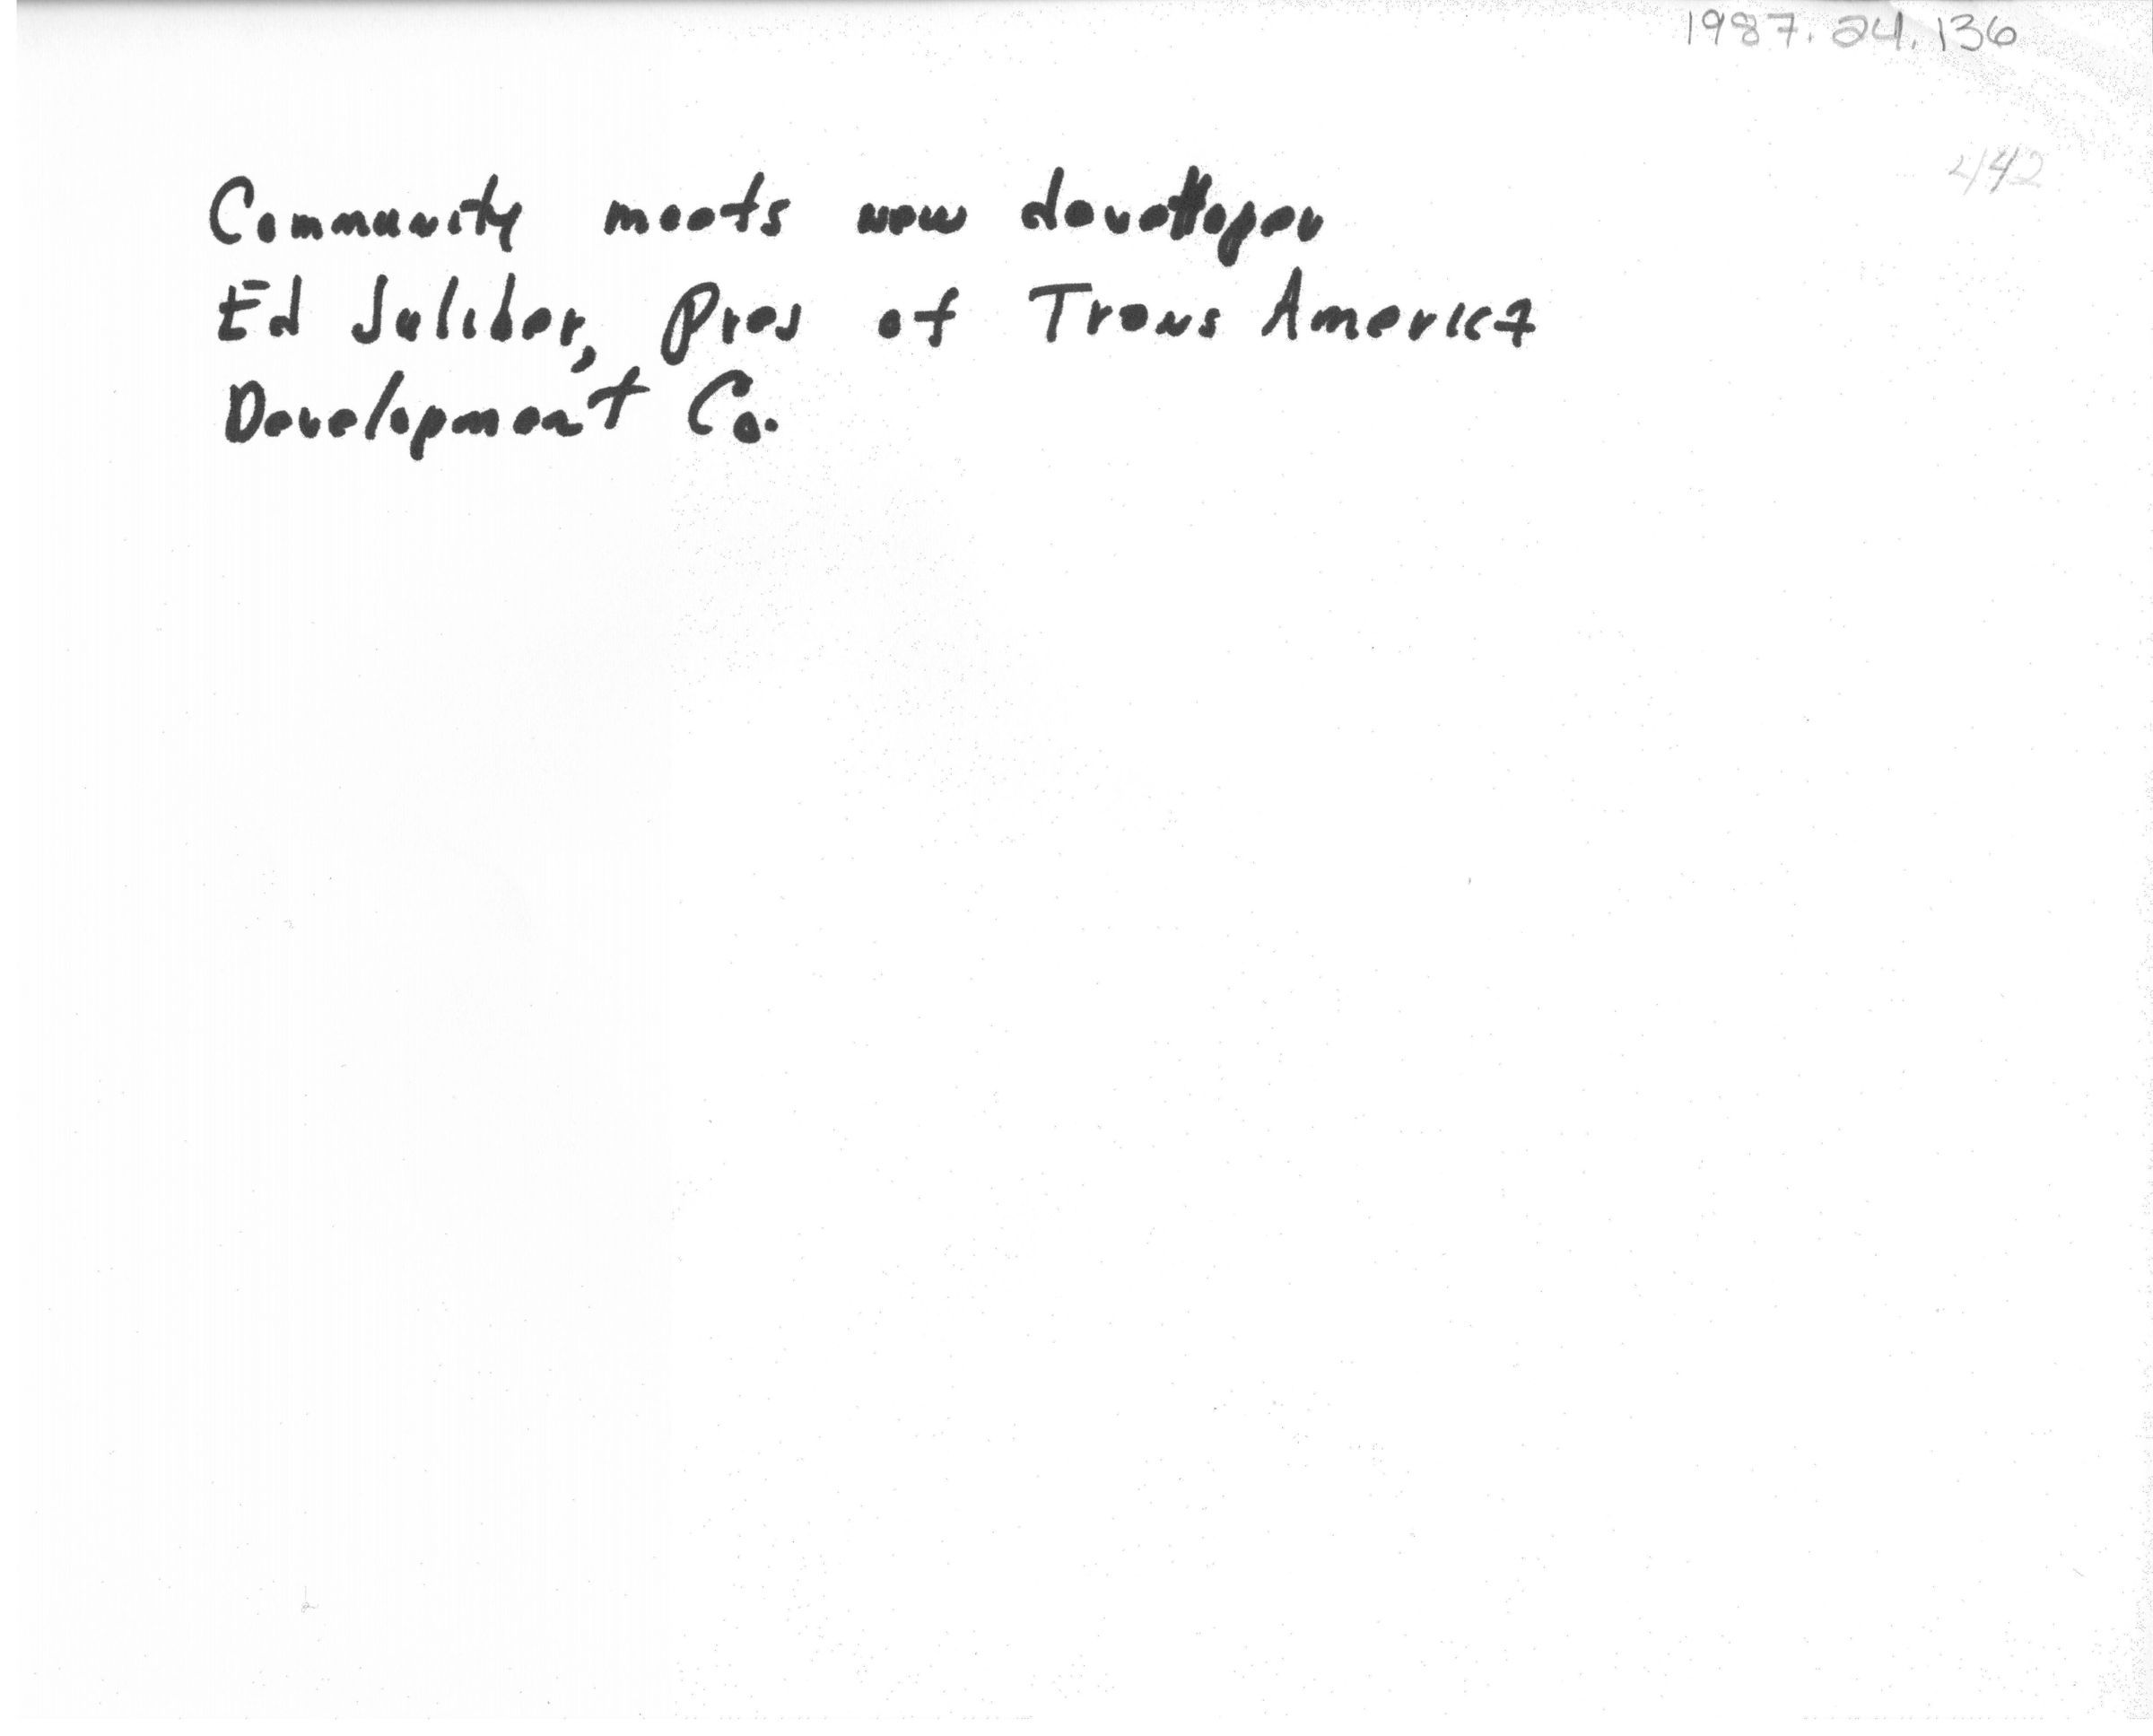 1987.24.136
442
Community meets new developer
Ed Juliber, Pres of Trans America
Development Co.